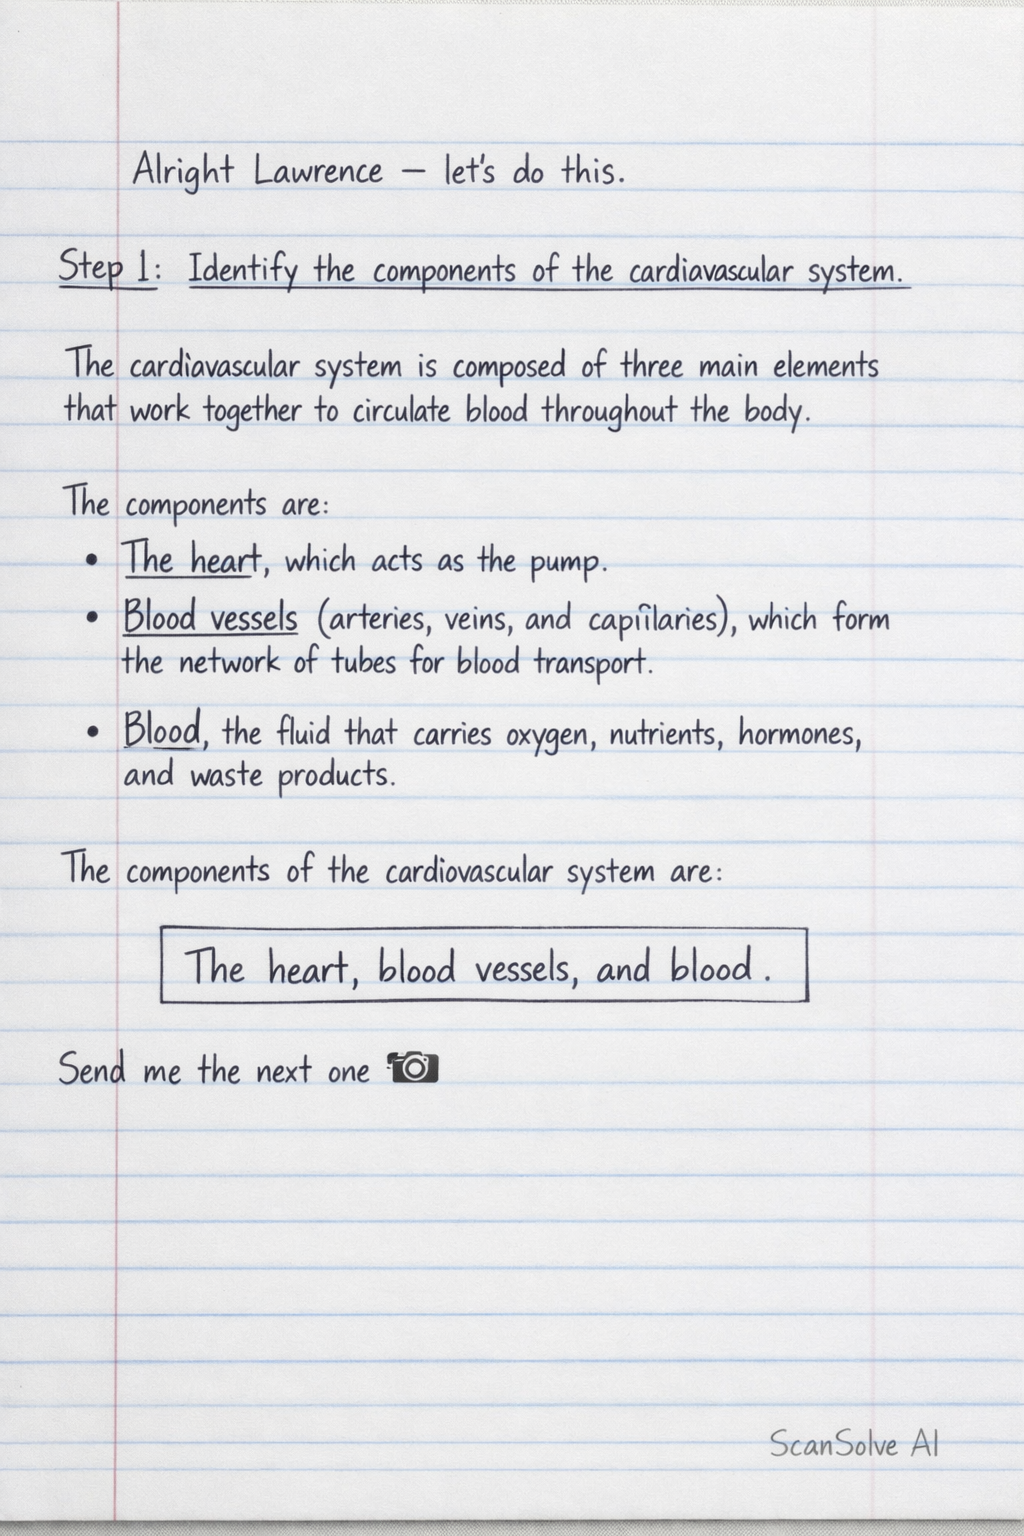 Alright Lawrence — let's do this.
Step 1: Identify the components of the cardiavascular system.
The cardiavascular system is composed of three main elements
that work together to circulate blood throughout the body.
The components are:
• The heart, which acts as the pump.
• Blood vessels (arteries, veins, and capillaries), which form
the network of tubes for blood transport.
• Blood, the fluid that carries oxygen, nutrients, hormones,
and waste products.
The components of the cardiovascular system are:
The heart, blood vessels, and blood.
Send me the next one 📷
ScanSolve AI